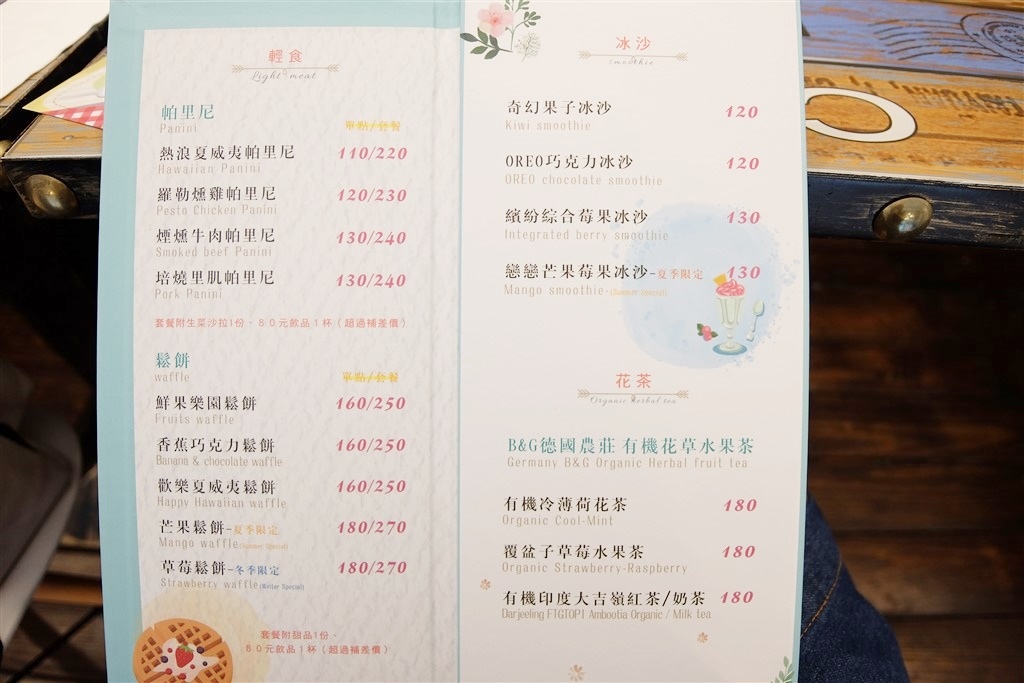 輕食
Light meat
帕里尼
Panini
單點/套餐
熱浪夏威夷帕里尼 110/220
Hawaiian Panini
羅勒燻雞帕里尼 120/230
Pesto Chicken Panini
煙燻牛肉帕里尼 130/240
Smoked beef Panini
培燒里肌帕里尼 130/240
Pork Panini
套餐附生菜沙拉1份、80元飲品1杯(超過補差價)
鬆餅
waffle
單點/套餐
鮮果樂園鬆餅 160/250
Fruits waffle
香蕉巧克力鬆餅 160/250
Banana & chocolate waffle
歡樂夏威夷鬆餅 160/250
Happy Hawaiian waffle
芒果鬆餅-夏季限定 180/270
Mango waffle(Summer Special)
草莓鬆餅-冬季限定 180/270
Strawberry waffle(Winter Special)
套餐附甜品1份、
80元飲品1杯(超過補差價)
冰沙
smoothie
奇幻果子冰沙 120
Kiwi smoothie
OREO巧克力冰沙 120
OREO chocolate smoothie
繽紛綜合莓果冰沙 130
Integrated berry smoothie
戀戀芒果莓果冰沙-夏季限定 130
Mango smoothie-(Summer Special)
花茶
Organic Herbal tea
B&G德國農莊 有機花草水果茶
Germany B&G Organic Herbal fruit tea
有機冷薄荷花茶 180
Organic Cool-Mint
覆盆子草莓水果茶 180
Organic Strawberry-Raspberry
有機印度大吉嶺紅茶/奶茶 180
Darjeeling FTGTOP1 Ambootia Organic / Milk tea